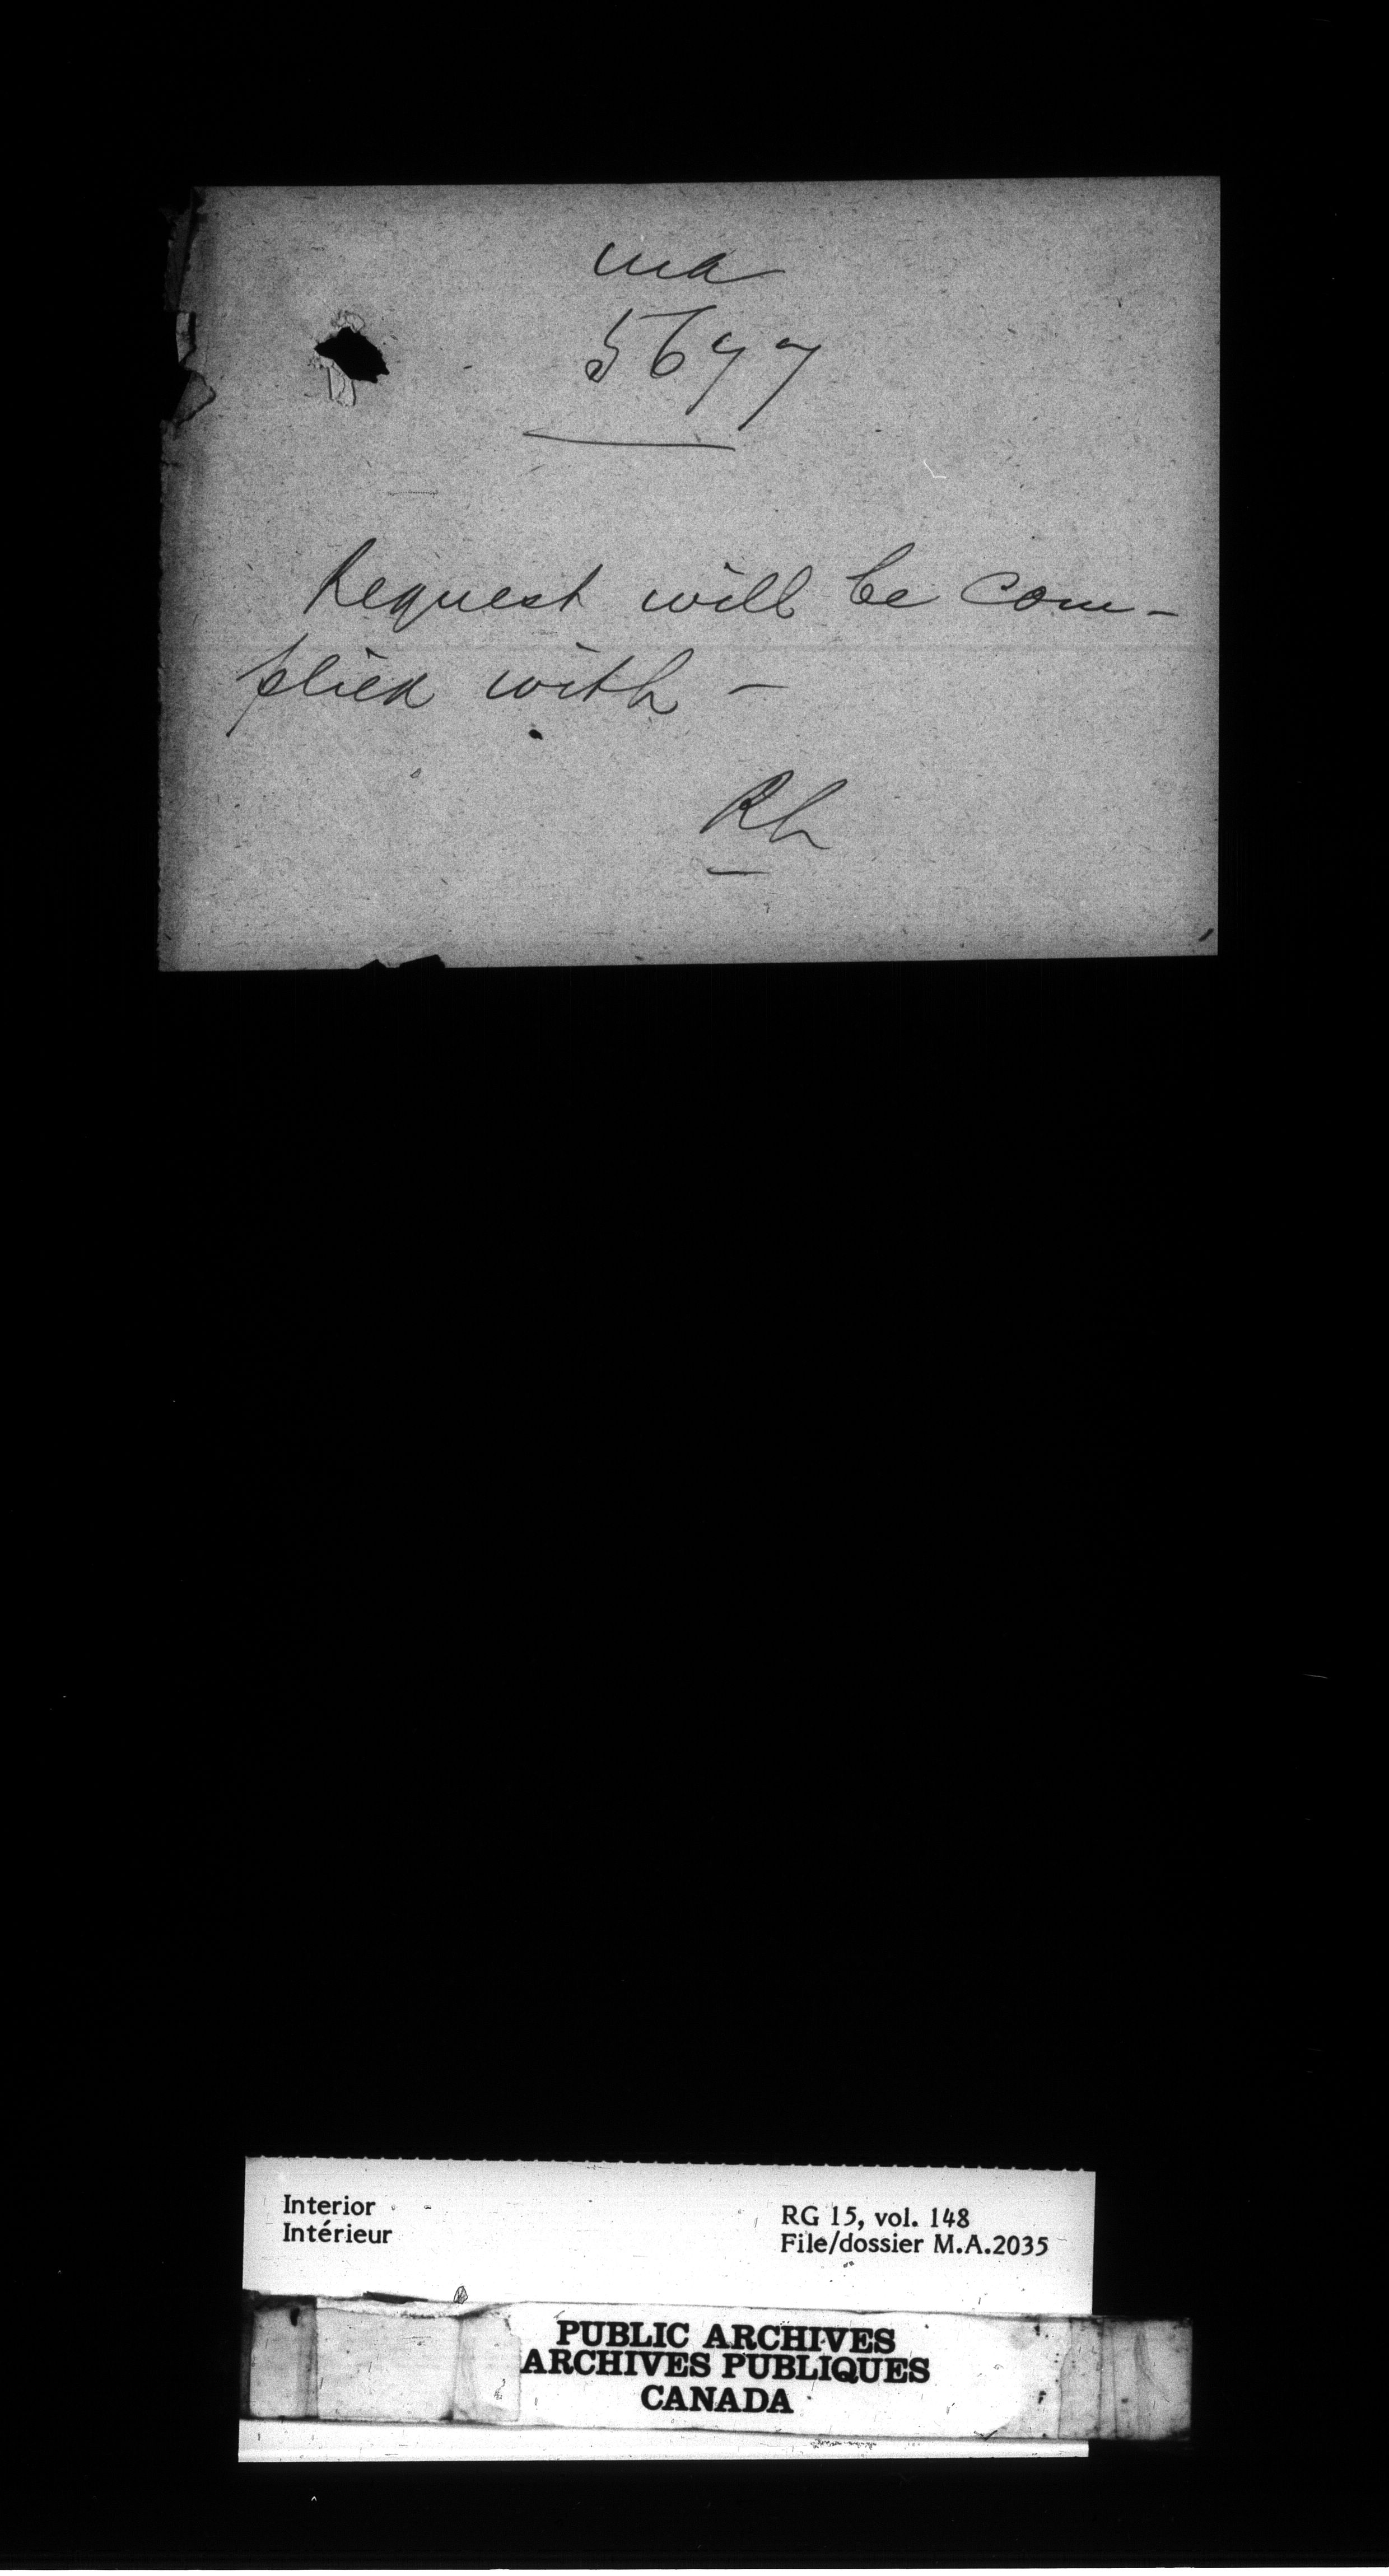 MA
5677
Request will be com-
plied with -
Rh
Interior
Intérieur
RG 15, vol. 148
File/dossier M.A.2035
PUBLIC ARCHIVES
ARCHIVES PUBLIQUES
CANADA